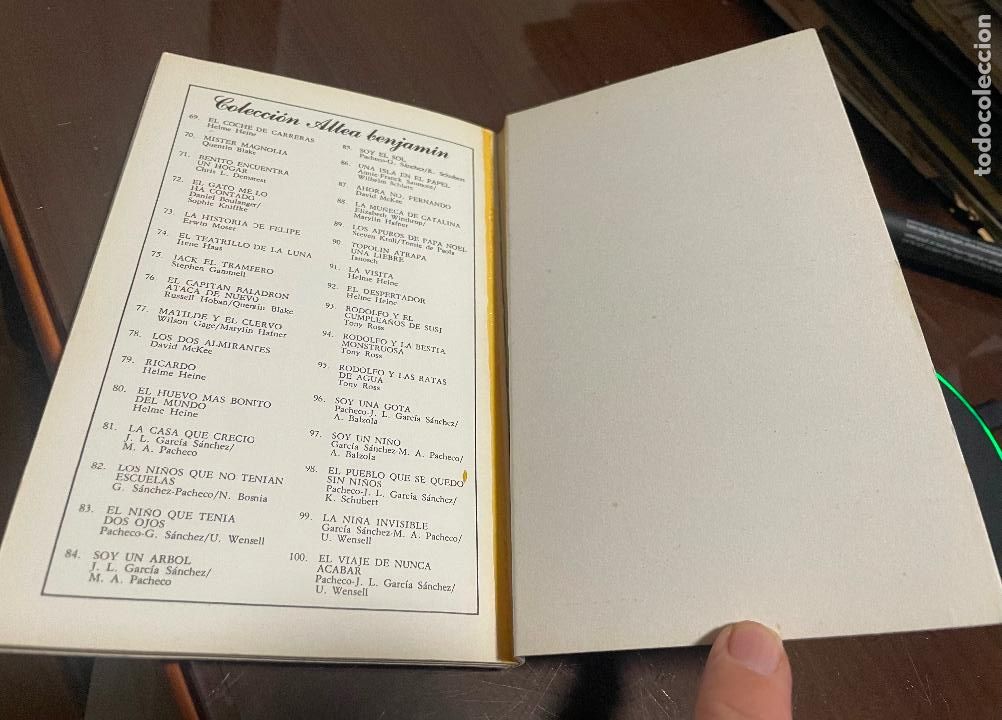 Colección Altea benjamín
69. EL COCHE DE CARRERAS
Helme Heine
70. MISTER MAGNOLIA
Quentin Blake
71. BENITO ENCUENTRA
UN HOGAR
Chris L. Demarest
72. EL GATO ME LO
HA CONTADO
Daniel Boulanger/
Sophie Kniffke
73. LA HISTORIA DE FELIPE
Erwin Moser
74. EL TEATRILLO DE LA LUNA
Irene Haas
75. JACK EL TRAMPERO
Stephen Gammell
76. EL CAPITAN BALADRON
ATACA DE NUEVO
Russell Hoban/Quentin Blake
77. MATILDE Y EL CLERVO
Wilson Gage/Marylin Hafner
78. LOS DOS ALMIRANTES
David McKee
79. RICARDO
Helme Heine
80. EL HUEVO MAS BONITO
DEL MUNDO
Helme Heine
81. LA CASA QUE CRECIO
J. L. García Sánchez/
M. A. Pacheco
82. LOS NIÑOS QUE NO TENIAN
ESCUELAS
G. Sánchez-Pacheco/N. Bosnia
83. EL NIÑO QUE TENIA
DOS OJOS
Pacheco-G. Sánchez/U. Wensell
84. SOY UN ARBOL
J. L. García Sánchez/
M. A. Pacheco
85. SOY EL SOL
Pacheco-G. Sánchez/K. Schubert
86. UNA ISLA EN EL PAPEL
Wilhelm Schlote
87. AHORA NO, FERNANDO
David McKee
88. LA MUÑECA DE CATALINA
Elizabeth Winthrop/
Marylin Hafner
89. LOS APUROS DE PAPA NOEL
Steven Kroll/Tomie de Paola
90. TOPOLIN ATRAPA
UNA LIEBRE
Janosch
91. LA VISITA
Helme Heine
92. EL DESPERTADOR
Helme Heine
93. RODOLFO Y EL
CUMPLEAÑOS DE SUSI
Tony Ross
94. RODOLFO Y LA BESTIA
MONSTRUOSA
Tony Ross
95. RODOLFO Y LAS RATAS
DE AGUA
Tony Ross
96. SOY UNA GOTA
Pacheco-J. L. García Sánchez/
A. Balzola
97. SOY UN NIÑO
García Sánchez-M. A. Pacheco/
A. Balzola
98. EL PUEBLO QUE SE QUEDO
SIN NIÑOS
Pacheco-J. L. García Sánchez/
K. Schubert
99. LA NIÑA INVISIBLE
García Sánchez-M. A. Pacheco/
U. Wensell
100. EL VIAJE DE NUNCA
ACABAR
Pacheco-J. L. García Sánchez/
U. Wensell
todocoleccion